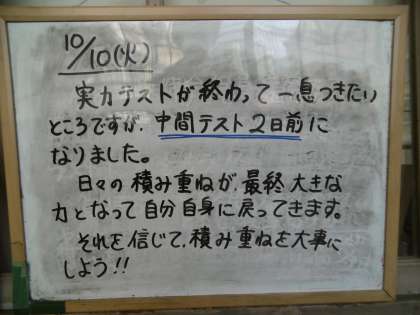 10/10(火)
実力テストが終わって一息つきたい
ところですが、中間テスト2日前に
なりました。
日々の積み重ねが、最終大きな
力となって自分自身に戻ってきます。
それを信じて、積み重ねを大事に
しよう!!